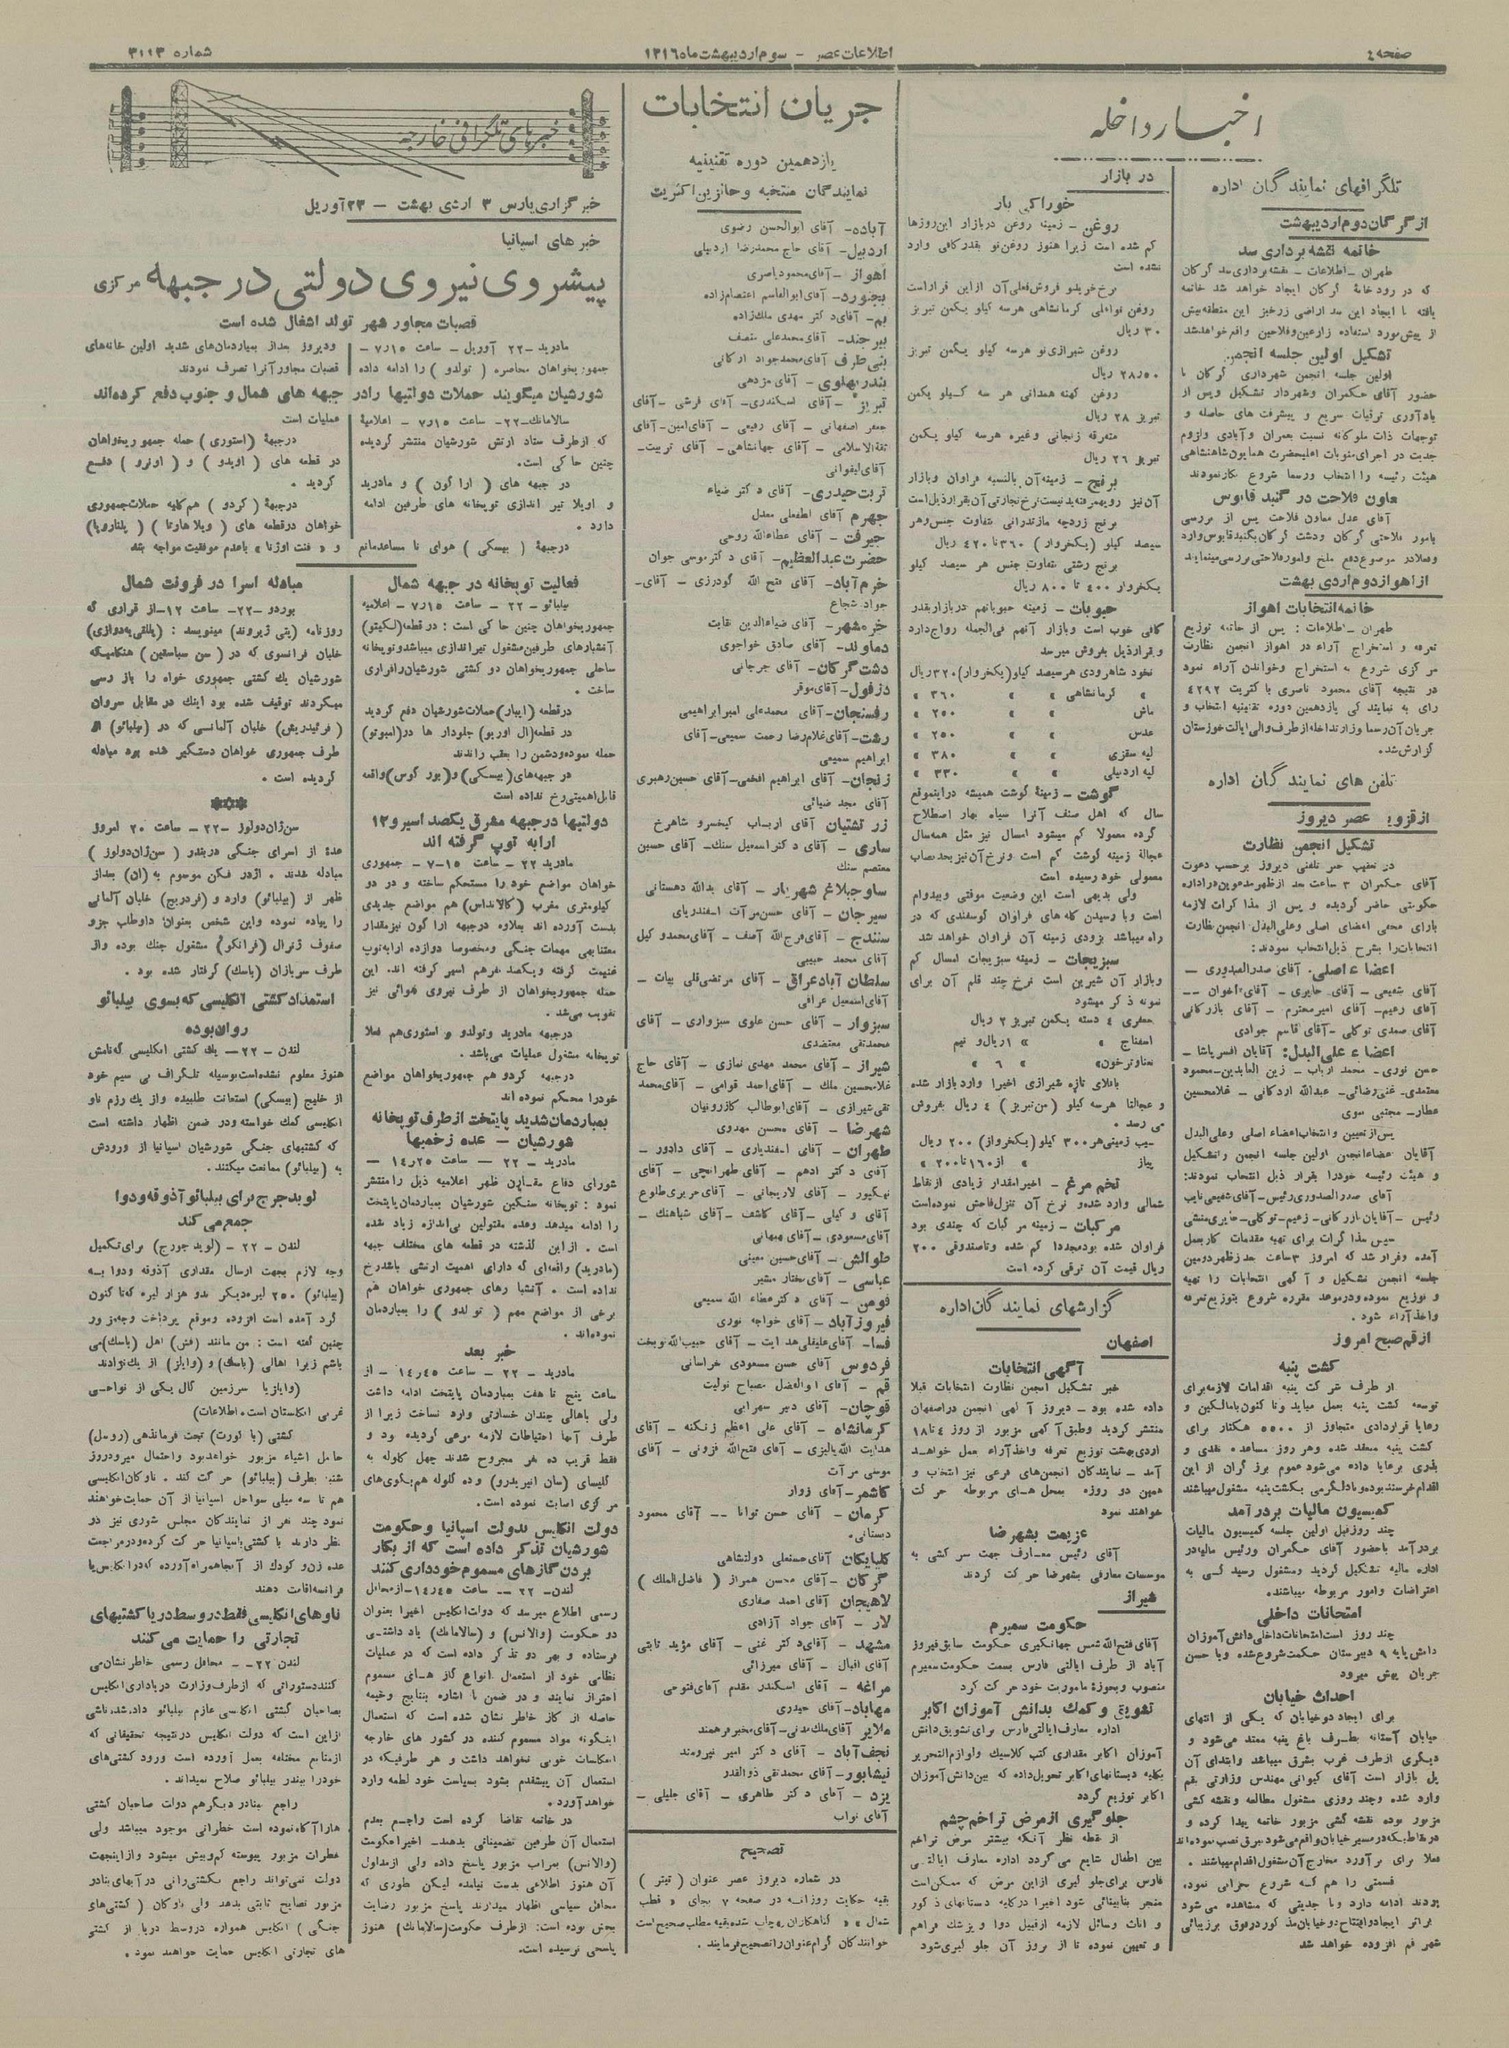 صفحه ٤
اطلاعات عصر - سوم اردیبهشت ماه ۱۳۱۶
شماره ۳۱۱۳
اخبار داخله
تلگرافهای نمایندگان اداره
از گرگان دوم اردیبهشت
خاتمه نقشه برداری سد
طهران - اطلاعات - نقشه برداری سد گرگان
که در رودخانهٔ گرگان ایجاد خواهد شد خاتمه
یافته با ایجاد این سد اراضی زرخیز این منطقه بیش
از پیش مورد استفاده زارعین و فلاحین واقع خواهد شد
تشکیل اولین جلسه انجمن
اولین جلسه انجمن شهرداری گرگان با
حضور آقای حکمران و شهردار تشکیل و پس از
یادآوری ترقیات سریع و پیشرفت های حاصله و
توجهات ذات ملوکانه نسبت بعمران و آبادی و لزوم
جدیت در اجرای منویات اعلیحضرت همایون شاهنشاهی
هیئت رئیسه را انتخاب و رسما شروع بکار نمودند
معاون فلاحت در گنبد قابوس
آقای عدل معاون فلاحت پس از بررسی
بامور فلاحتی گرگان و دشت گرگان بگنبد قابوس وارد
از اهواز دوم اردی بهشت
خاتمه انتخابات اهواز
طهران - اطلاعات : پس از خاتمه توزیع
تعرفه و استخراج آراء در اهواز انجمن نظارت
مرکزی شروع به استخراج و خواندن آراء نمود
در نتیجه آقای محمود ناصری با کثریت ٤٢٩٢
رای به نمایندگی یازدهمین دوره تقنینیه انتخاب و
جریان آن رسما وزارتداخله از طرف والی ایالت خوزستان
گزارش شد.
تلفن های نمایندگان اداره
از قزوین عصر دیروز
تشکیل انجمن نظارت
در تعقیب خبر تلفنی دیروز برحسب دعوت
آقای حکمران ۳ ساعت بعد از ظهر مدعوین در اداره
حکومتی حاضر گردیده و پس از مذاکرات لازمه
بارای مخفی اعضای اصلی و علی البدل انجمن نظارت
انتخابات را بشرح ذیل انتخاب نمودند:
اعضاء اصلی: آقای صدرالصدوری -
آقای شفیعی - آقای حایری - آقای اخوان -
آقای زعیم - آقای امیر محترم - آقای بازرکانی
آقای صمدی توکلی - آقای قاسم جوادی
اعضاء علی البدل: آقایان افسر پاشا -
حسن نوری - محمد ارباب - زین العابدین - محمود
معتمدی - غنی رضائی - عبدالله اردکانی - غلامحسین
عطار - مجتبی سوی
پس از تعیین و انتخاب اعضاء اصلی و علی البدل
آقایان اعضاء انجمن اولین جلسه انجمن را تشکیل
و هیئت رئیسه خود را بقرار ذیل انتخاب نمودند:
آقای صدرالصدوری رئیس - آقای شفیعی نایب
رئیس - آقایان بازرکانی - زعیم - توکلی - حایری منشی
سپس مذاکرات برای تهیه مقدمات کار بعمل
آمده و قرار شد که امروز ۳ ساعت بعد از ظهر دومین
جلسه انجمن تشکیل و آگهی انتخابات را تهیه
و توزیع نموده و در موعد مقرره شروع بتوزیع تعرفه
و اخذ آراء شود.
از قم صبح امروز
کشت پنبه
از طرف شرکت پنبه اقدامات لازمه برای
توسعه کشت پنبه بعمل میاید و تا کنون با مالکین و
رعایا قراردادی متجاوز از ٥٥٠٠ هکتار برای
کشت پنبه منعقد شده و هر روز مساعده نقدی و
بذری برعایا داده می شود عموم برزگران از این
اقدام خرسند بوده و با دلگرمی بکشت پنبه مشغول میباشند
کمیسیون مالیات بردرآمد
چند روز قبل اولین جلسه کمیسیون مالیات
بردرآمد با حضور آقای حکمران و رئیس مالیه در
اداره مالیه تشکیل گردید و مشغول رسیدگی به
اعتراضات و امور مربوطه میباشند.
امتحانات داخلی
چند روز است امتحانات داخلی دانش آموزان
دانش پایه ۹ دبیرستان حکمت شروع شده و با حسن
جریان پیش میرود
احداث خیابان
برای ایجاد دو خیابان که یکی از انتهای
خیابان آستانه بطرف باغ پنبه ممتد می شود و
دیگری از طرف غرب بشرق میباشد و ابتدای آن
پل بازار است آقای کیوانی مهندس وزارتی بقم
وارد شده و چند روزی مشغول مطالعه و نقشه کشی
مزبور بوده نقشه کشی مزبور خاتمه پیدا کرده و
در نقاطیکه در مسیر خیابان واقع می شود بیرق نصب نموده اند
فعلا برای برآورد مخارج آن مشغول اقدام میباشند.
شهر قم افزوده خواهد شد
در بازار
خوراکی بار
روغن - زمینه روغن در بازار این روزها
کم شده است زیرا هنوز روغن نو بقدر کافی وارد
نشده است
نرخ خرید و فروش فعلی آن از این قرار است
روغن نواعلی کرمانشاهی هر سه کیلو یکمن تبریز
۳۰ ریال
روغن شیرازی نو هر سه کیلو یکمن تبریز
۲۸٫۵۰ ریال
روغن کهنه همدانی هر سه کیلو یکمن
تبریز ۲۸ ریال
متفرقه زنجانی و غیره هر سه کیلو یکمن
تبریز ۲۶ ریال
برنج - زمینه آن بالنسبه فراوان و بازار
آن نیز رویهمرفته بد نیست نرخ تجارتی آن بقرار ذیل است
برنج زردچه مازندرانی متفاوت جنس و هر
سیصد کیلو (یکخروار) ٣٦٠ تا ٤٢٠ ریال
برنج رشتی متفاوت جنس هر سیصد کیلو
یکخروار ٤٠٠ تا ٨٠٠ ریال
حبوبات - زمینه حبوبات هم در بازار بقدر
کافی خوب است و بازار آنهم فی الجمله رواج دارد
و بقرار ذیل بفروش میرسد
نخود شاهرودی هر سیصد کیلو (یکخروار) ۳۲۰ ریال
» کرمانشاهی » » ٣٦٠ »
ماش » » ۲۵۰ »
عدس » » ۲۵۰ »
لپه سقزی » » ۳۸۰ »
لپه اردبیلی » » ۳۳۰ »
گوشت - زمینهٔ گوشت همیشه در اینموقع
سال که اهل صنف آنرا سیاه بهار اصطلاح
کرده معمولا کم میشود امسال نیز مثل همه سال
عجالة زمینه گوشت کم است و نرخ آن نیز بحد نصاب
معمولی خود رسیده است
ولی بدیهی است این وضعیت موقتی و بیدوام
است و با رسیدن گله های فراوان گوسفندی که در
راه میباشد بزودی زمینه آن فراوان خواهد شد
سبزیجات - زمینه سبزیجات امسال کم
و بازار آن شیرین است نرخ چند قلم آن برای
نمونه ذکر میشود
جعفری ٤ دسته یکمن تبریز ۲ ریال
اسفناج » » ۱ ریال و نیم
نعنا و ترخون » » ٦ »
باقلای تازه شیرازی اخیرا وارد بازار شده
و عجالتا هر سه کیلو (من تبریز) ٤ ریال بفروش
می رسد.
سیب زمینی هر ۳۰۰ کیلو (یکخروار) ۲۰۰ ریال
پیاز » از ١٦٠ تا ۲۰۰ »
تخم مرغ - اخیرا مقدار زیادی از نقاط
شمالی وارد شده و نرخ آن تنزل فاحش نموده است
مرکبات - زمینه مرکبات که چندی بود
فراوان شده بود مجددا کم شده و تا صندوقی ۲۰۰
ریال قیمت آن ترقی کرده است
گزارشهای نمایندگان اداره
اصفهان
آگهی انتخابات
خبر تشکیل انجمن نظارت انتخابات قبلا
داده شده بود - دیروز آگهی انجمن در اصفهان
منتشر گردید و طبق آگهی مزبور از روز ٤ تا ۱۸
اردی بهشت توزیع تعرفه و اخذ آراء بعمل خواهد
آمد - نمایندگان انجمن های فرعی نیز انتخاب و
همین دو روزه بمحل های مربوطه حرکت
خواهند نمود
عزیمت بشهرضا
آقای رئیس معارف جهت سرکشی به
موسسات معارفی بشهرضا حرکت کردند
شیراز
حکومت سمیرم
آقای فتح الله شمس جهانگیری حکومت سابق فیروز
آباد از طرف ایالتی فارس بسمت حکومت سمیرم
منصوب و بحوزهٔ ماموریت خود حرکت کرد
تشویق و کمک بدانش آموزان اکابر
اداره معارف ایالتی فارس برای تشویق دانش
آموزان اکابر مقداری کتب کلاسیک و لوازم التحریر
بکلیه دبستانهای اکابر تحویل داده که بین دانش آموزان
اکابر توزیع گردد
جلوگیری از مرض تراخم چشم
از نقطه نظر آنکه بیشتر مرض تراخم
بین اطفال شایع می گردد اداره معارف ایالتی
فارس برای جلوگیری از این مرض که ممکن است
منجر بنابینائی شود اخیرا در کلیه دبستانهای ذکور
و اناث وسائل لازمه از قبیل دوا و پزشک فراهم
و تعیین نموده تا از بروز آن جلوگیری شود
جریان انتخابات
یازدهمین دوره تقنینیه
نمایندگان منتخبه و حائزین اکثریت
آباده - آقای ابوالحسن رضوی
اردبیل - آقای حاج محمدرضا اردبیلی
اهواز - آقای محمود ناصری
بجنورد - آقای ابوالقاسم اعتصام زاده
بم - آقای دکتر مهدی ملک زاده
بیرجند - آقای محمدعلی منصف
بنی طرف - آقای محمد جواد ارکانی
بندر پهلوی - آقای مژدهی
تبریز - آقای اسکندری - آقای فرشی - آقای
جعفر اصفهانی - آقای رفیعی - آقای امین - آقای
ثقة الاسلامی - آقای جهانشاهی - آقای تربیت -
آقای لیقوانی
تربت حیدری - آقای دکتر ضیاء
جهرم - آقای لطفعلی معدل
جیرفت - آقای عطاءالله روحی
حضرت عبدالعظیم - آقای دکتر موسی جوان
خرم آباد - آقای فتح الله گودرزی - آقای -
جواد شجاع
خرمشهر - آقای ضیاءالدین نقابت
دماوند - آقای صادق خواجوی
دشت گرگان - آقای جرجانی
دزفول - آقای موقر
رفسنجان - آقای محمدعلی امیرابراهیمی
رشت - آقای غلامرضا رحمت سمیعی - آقای
ابراهیم سمیعی
زنجان - آقای ابراهیم افخمی - آقای حسین رهبری
آقای مجد ضیائی
زرتشتیان - آقای ارباب کیخسرو شاهرخ
ساری - آقای دکتر اسمعیل سنک - آقای حسین
معتصم سنک
ساوجبلاغ شهریار - آقای یدالله دهستانی
سیرجان - آقای حسن مرآت اسفندیاری
سنندج - آقای فرج الله آصف - آقای محمد وکیل
آقای محمد حبیبی
سلطان آباد عراق - آقای مرتضی قلی بیات -
آقای اسمعیل عراقی
سبزوار - آقای حسن علوی سبزواری - آقای
محمد تقی معتضدی
شیراز - آقای محمد مهدی نمازی - آقای حاج
غلامحسین ملک - آقای احمد قوامی - آقای محمد
تقی شیرازی - آقای ابوطالب کازرونیان
شهرضا - آقای محسن مهدوی
طهران - آقای اسفندیاری - آقای دادور -
آقای دکتر ادهم - آقای طهرانچی - آقای
نیکپور - آقای لاریجانی - آقای حریری طلوع
آقای وکیلی - آقای کاشف - آقای شباهنک -
آقای مسعودی - آقای بهبهانی
طوالش - آقای حسین معینی
عباسی - آقای مختار مشیر
فومن - آقای دکتر عطاءالله سمیعی
فیروزآباد - آقای خواجه نوری
فسا - آقای علیقلی هدایت - آقای حبیب الله نوبخت
فردوس - آقای حسن مسعودی خراسانی
قم - آقای ابوالفضل مصباح تولیت
قوچان - آقای دبیر سهرابی
کرمانشاه - آقای علی اعظم زنگنه - آقای
هدایت الله پالیزی - آقای فتح الله قزونی - آقای
موسی مرآت
کاشمر - آقای زوار
کرمان - آقای حسن توانا - آقای محمود
دستانی.
گلپایگان - آقای حسنعلی دولتشاهی
گرگان - آقای محسن همراز ( فاضل الملک )
لاهیجان - آقای احمد صفاری
لار - آقای جواد آزادی
مشهد - آقای دکتر غنی - آقای مؤید ثابتی
آقای اقبال - آقای میرزائی
مراغه - آقای اسکندر مقدم - آقای فتوحی
مهاباد - آقای حیدری
ملایر - آقای ملک مدنی - آقای مخبر فرهمند
نجف آباد - آقای دکتر امیر نیرومند
نیشابور - آقای محمد تقی ذوالقدر
یزد - آقای دکتر طاهری - آقای جلیلی -
آقای نواب
تصحیح
در شماره دیروز عصر عنوان ( تیتر )
بقیه حکایت روزانه در صفحه ۷ بجای « قطب
شمال » « گناهکاران » چاپ شده بقیه مطلب صحیح است
خوانندگان گرام عنوان را تصحیح فرمایند.
خبرهای تلگرافی خارجه
خبرگزاری پارس ۳ اردی بهشت - ۲۳ آوریل
خبرهای اسپانیا
پیشروی نیروی دولتی در جبهه مرکزی
قصبات مجاور شهر تولد اشغال شده است
مادرید - ۲۲ آوریل - ساعت ۷٫۱۵ -
جمهوریخواهان محاصره ( تولدو ) را ادامه داده
و دیروز بعد از بمباردمان های شدید اولین خانه های
قصبات مجاور آنرا تصرف نمودند
شورشیان میگویند حملات دولتیها را در جبهه های شمال و جنوب دفع کرده اند
سالامانک - ۲۲ - ساعت ۷٫۱۵ - اعلامیهٔ
که از طرف ستاد ارتش شورشیان منتشر گردیده
چنین حاکی است.
در جبهه های ( اراگون ) و مادرید
و اویلا تیر اندازی توپخانه های طرفین ادامه
دارد.
در جبههٔ ( بیسکی ) هوای نا مساعد مانع
عملیات است
در جبههٔ (استوری) حمله جمهوریخواهان
در قطعه های ( اویدو ) و ( اونرو ) دفع
گردید.
در جبههٔ (کردو) هم کلیه حملات جمهوری
خواهان در قطعه های ( ویلا هارتا ) ( پلنارویا)
و « فنت اوژنا » با عدم موفقیت مواجه شد.
فعالیت توپخانه در جبهه شمال
بیلبائو - ۲۲ - ساعت ۷٫۱۵ - اعلامیه
جمهوریخواهان چنین حاکی است : در قطعه (لکیتو)
آتشبارهای طرفین مشغول تیراندازی میباشد و توپخانه
ساحلی جمهوریخواهان دو کشتی شورشیان را فراری
ساخت.
در قطعه (ایبار) حملات شورشیان دفع گردید
حمله نموده و دشمن را بعقب راندند
قابل اهمیتی رخ نداده است
دولتیها در جبهه مشرق یکصد اسیر و ۱۲
ارابه توپ گرفته اند
مادرید ۲۲ - ساعت ۷٫۱۵ - جمهوری
خواهان مواضع خود را مستحکم ساخته و در دو
کیلومتری مغرب (کالانداس) هم مواضع جدیدی
بدست آورده اند بعلاوه در جبهه اراگون نیز مقدار
معتنابهی مهمات جنگی و مخصوصا دوازده ارابه توپ
غنیمت گرفته و یکصد نفر هم اسیر گرفته اند. این
حمله جمهوریخواهان از طرف نیروی هوائی نیز
تقویت می شد.
در جبهه مادرید و تولدو و استوری هم فعلا
توپخانه مشغول عملیات می باشد.
در جبهه کردو هم جمهوریخواهان مواضع
خود را محکم نموده اند
بمباردمان شدید پایتخت از طرف توپخانه
شورشیان - عده زخمیها
مادرید - ۲۲ - ساعت ۱۴٫۲۵ -
شورای دفاع مقارن ظهر اعلامیه ذیل را منتشر
نمود : توپخانه سنگین شورشیان بمباردمان پایتخت
را ادامه میدهد و عده مقتولین بی اندازه زیاد شده
است. از این گذشته در قطعه های مختلف جبهه
(مادرید) واقعه ای که دارای اهمیت ارتشی باشد رخ
نداده است. آتشبارهای جمهوری خواهان هم
برخی از مواضع مهم ( تولدو ) را بمباردمان
نموده اند.
خبر بعد
مادرید - ۲۲ - ساعت ۱۴٫۴۵ - از
ساعت پنج تا هفت بمباردمان پایتخت ادامه داشت
ولی باهالی چندان خسارتی وارد نساخت زیرا از
طرف آنها احتیاطات لازمه مرعی گردیده بود و
فقط قریب ده نفر مجروح شدند چهل گلوله به
کلیسای (سان ایزیدرو) و ده گلوله هم بکوی های
مرکزی اصابت نموده است.
دولت انگلیس بدولت اسپانیا و حکومت
شورشیان تذکر داده است که از بکار
بردن گازهای مسموم خودداری کنند
لندن - ۲۲ - ساعت ۱۴٫۴۵ - از محافل
رسمی اطلاع میرسد که دولت انگلیس اخیرا بعنوان
دو حکومت (والانس) و (سالامانک) یادداشتی
فرستاده و بهر دو تذکر داده است که در عملیات
نظامی خود از استعمال انواع گازهای مسموم
احتراز نمایند و در ضمن با اشاره بنتایج وخیمه
حاصله از گاز خاطر نشان شده است که استعمال
اینگونه مواد مسموم کننده در کشور های خارجه
انعکاسات خوبی نخواهد داشت و هر طرفیکه در
استعمال آن پیشقدم بشود بسیاست خود لطمه وارد
خواهد آورد.
در خاتمه تقاضا کرده است راجع بعدم
استعمال آن طرفین تضمیناتی بدهند - اخیرا حکومت
(والانس) بمراتب مزبور پاسخ داده ولی از مدلول
آن هنوز اطلاعی بدست نیامده لیکن بطوری که
محافل سیاسی اظهار میدارند پاسخ مزبور رضایت
بخش بوده است : از طرف حکومت (سالامانک) هنوز
پاسخی نرسیده است.
مبادله اسرا در فرونت شمال
بوردو - ۲۲ - ساعت ۱۲ - از قراری که
خلبان فرانسوی که در ( سن سباستین ) هنگامیکه
شورشیان یک کشتی جمهوری خواه را باز رسی
میکردند توقیف شده بود اینک در مقابل سروان
(فرئیدریش) خلبان آلمانی که در (بیلبائو) از
طرف جمهوری خواهان دستگیر شده بود مبادله
گردیده است.
سن ژان دولوز - ۲۲ - ساعت ۲۰ امروز
عدهٔ از اسرای جنگی در بندر ( سن ژان دولوز )
مبادله شدند. اژدر فکن موسوم به (ان) بعد از
ظهر از (بیلبائو) وارد و (فردریج) خلبان آلمانی
را پیاده نموده و این شخص بعنوان داوطلب جزو
صفوف ژنرال (فرانکو) مشغول جنک بوده و از
طرف سربازان (باسک) گرفتار شده بود.
استمداد کشتی انگلیسی که بسوی بیلبائو
روان بوده
لندن - ۲۲ - یک کشتی انگلیسی که نامش
هنوز معلوم نشده است بوسیله تلگراف بی سیم خود
از خلیج (بیسکی) استعانت طلبیده و از یک رزم ناو
انگلیسی کمک خواسته و در ضمن اظهار داشته است
که کشتیهای جنگی شورشیان اسپانیا از ورودش
به (بیلبائو) ممانعت میکنند.
لوید جرج برای بیلبائو آذوقه و دوا
جمع می کند
لندن - ۲۲ - (لوید جورج) برای تکمیل
وجه لازم بجهت ارسال مقداری آذوقه و دوا به
(بیلبائو) ۲۵۰ لیره دیگر بدو هزار لیره که تا کنون
گرد آمده است افزوده و موقع پرداخت وجه مزبور
چنین گفته است : من مانند (فنن) اهل (باسک) می
باشم زیرا اهالی (باسک) و (وایلز) از یک نژادند
(وایلز یا سرزمین گال یکی از نواحی
غربی انگلستان است. اطلاعات)
حامل اشیاء مزبور خواهد بود و احتمال میرود روز
شنبه بطرف (بیلبائو) حرکت کند. ناوگان انگلیسی
هم تا سه میلی سواحل اسپانیا از آن حمایت خواهند
نمود چند نفر از نمایندگان مجلس شوری نیز در
نظر دارند با کشتی باسپانیا حرکت کرده و در مراجعت
عده زن و کودک از آنجا همراه آورده که در انگلیس یا
فرانسه اقامت دهند
ناوهای انگلیسی فقط در وسط دریا کشتیهای
تجارتی را حمایت می کنند
لندن ۲۲ - محافل رسمی خاطر نشان می
کنند دستوراتی که از طرف وزارت دریاداری انگلیس
بصاحبان کشتی انگلیسی عازم بیلبائو داده شده ناشی
از این است که دولت انگلیس در نتیجه تحقیقاتی که
از منابع مختلفه بعمل آورده است ورود کشتی های
خود را ببندر بیلبائو صلاح نمیداند.
راجع ببنادر دیگر هم دولت صاحبان کشتی
ها را آگاه نموده است خطراتی موجود میباشد ولی
خطرات مزبور پیوسته کم و بیش میشود و از اینجهت
دولت نمی تواند راجع بکشتی رانی در آبهای بنادر
مزبور نصایح ثابتی بدهد ولی ناوگان (کشتی های
جنگی ) انگلیس همواره در وسط دریا از کشتی
های تجارتی انگلیس حمایت خواهند نمود.